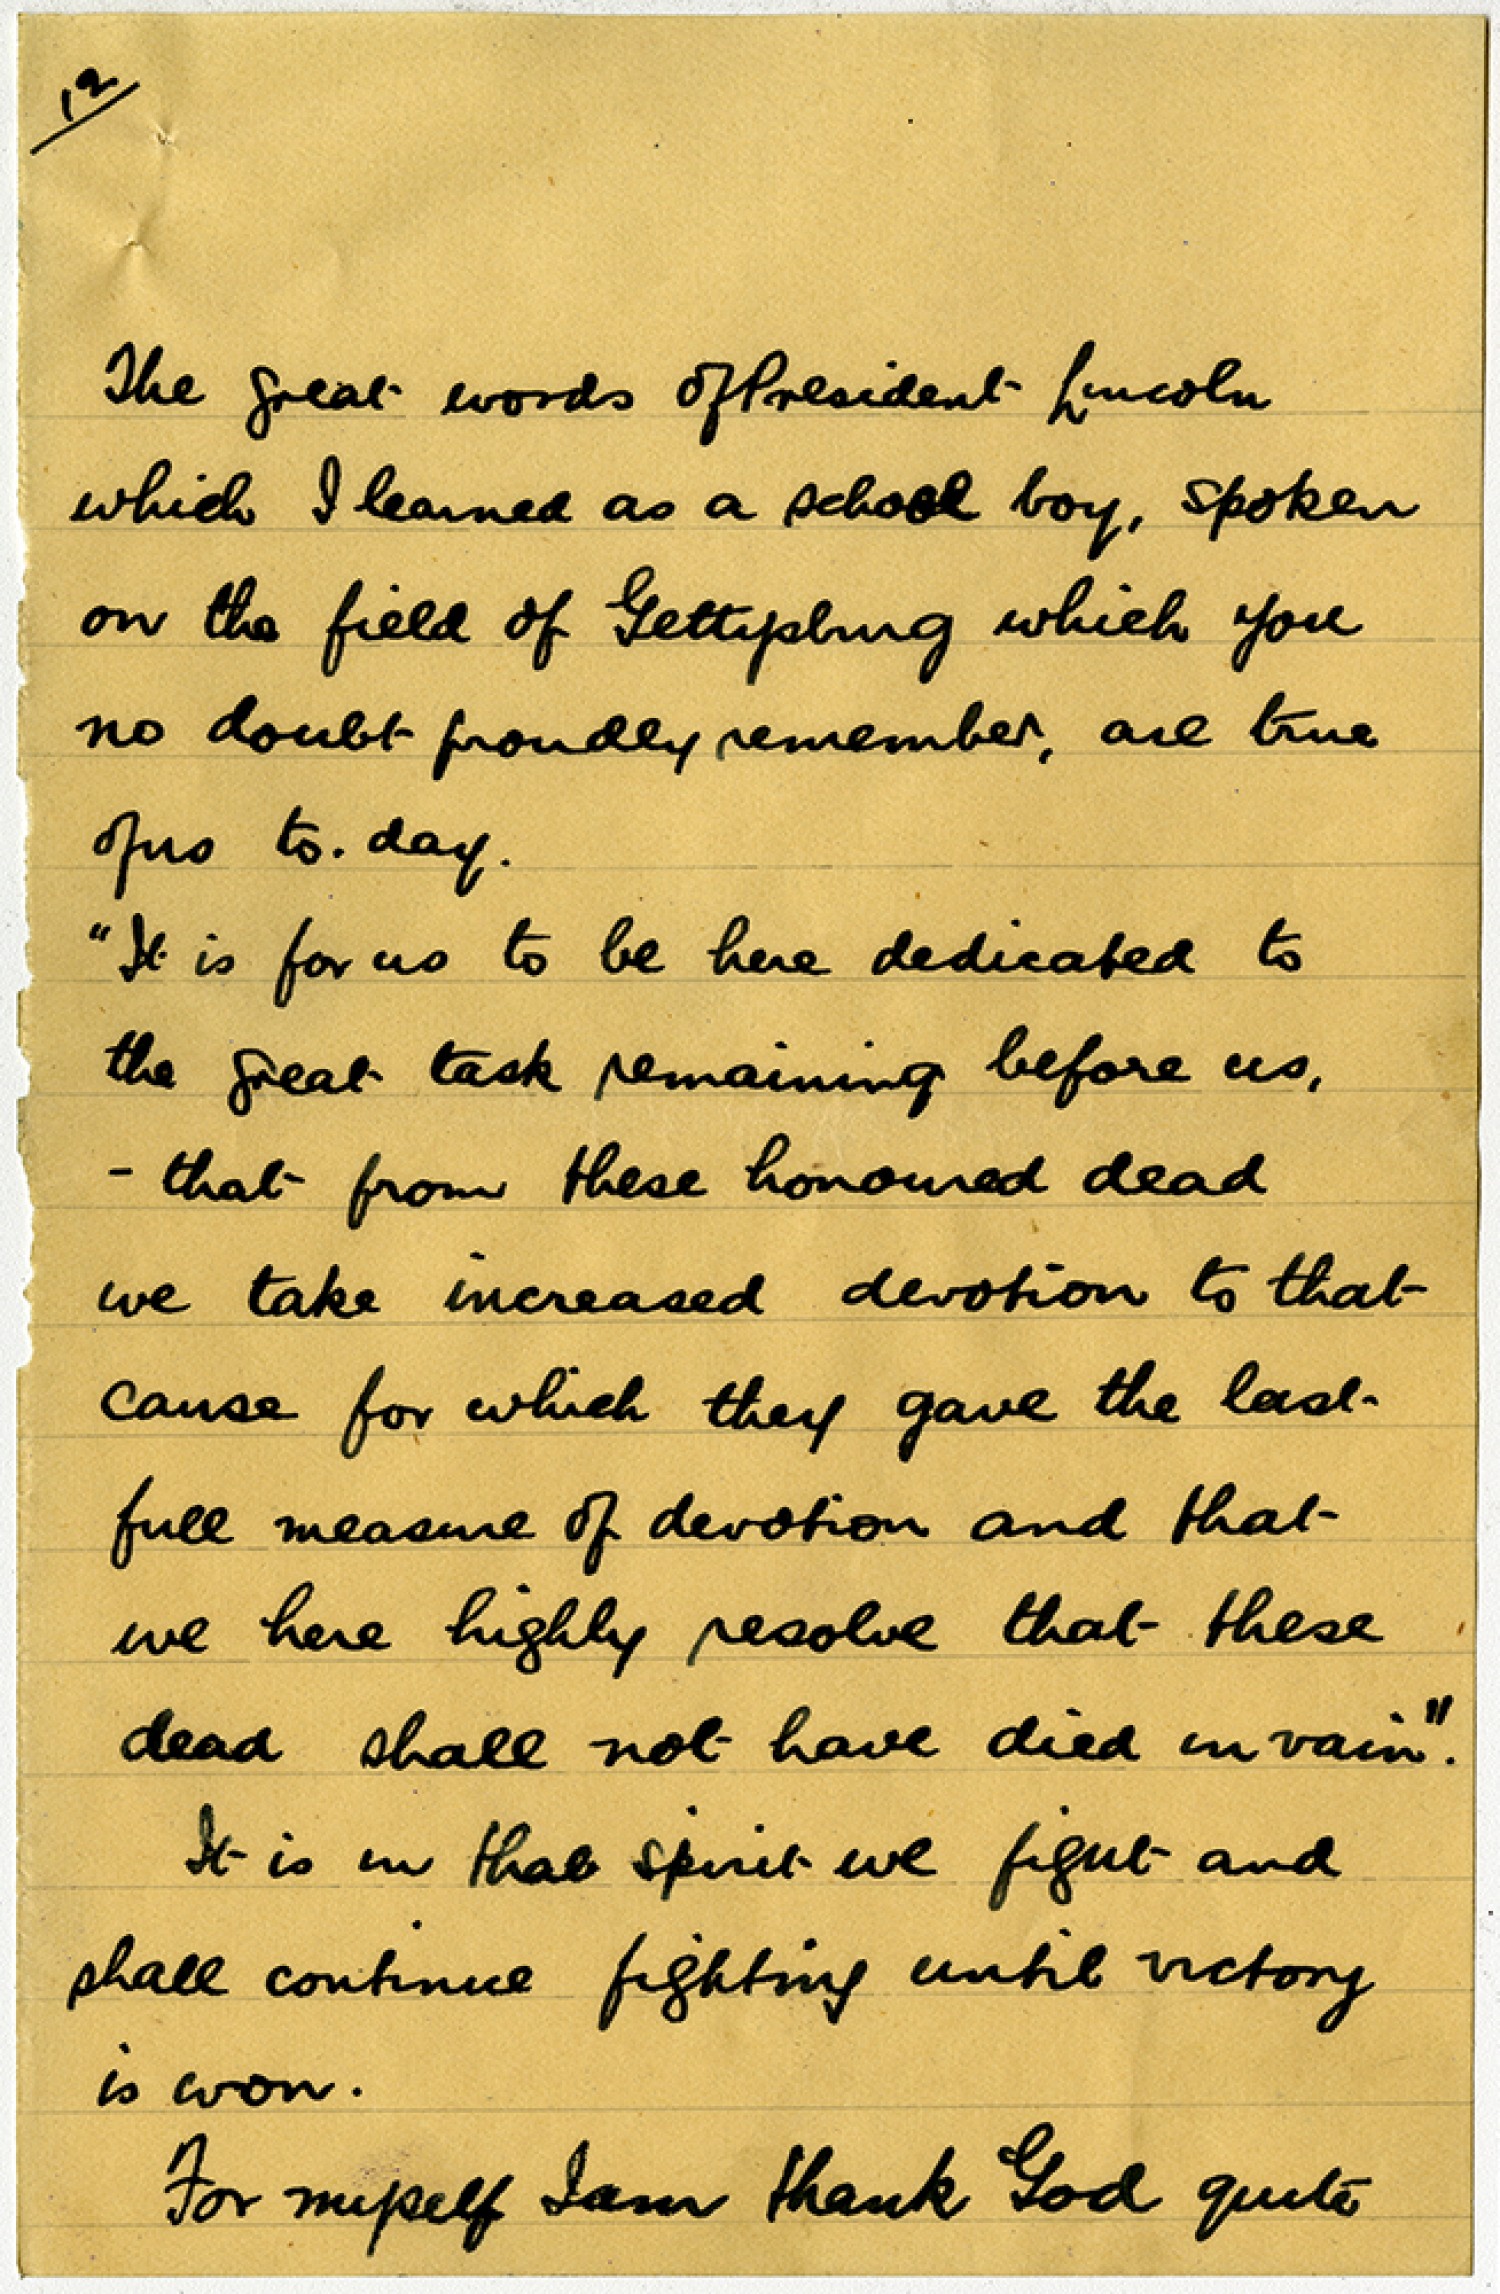 12
The great words of President Lincoln
which I learned as a school boy, spoken
on the field of Gettysburg which you
no doubt proudly remember, are true
of us to. day.
"It is for us to be here dedicated to
the great task remaining before us,
- that from these honoured dead
we take increased devotion to that
cause for which they gave the last
full measure of devotion and that
we here highly resolve that these
dead shall not have died in vain".
It is in that spirit we fight and
shall continue fighting until victory
is won.
For myself I am thank God quite